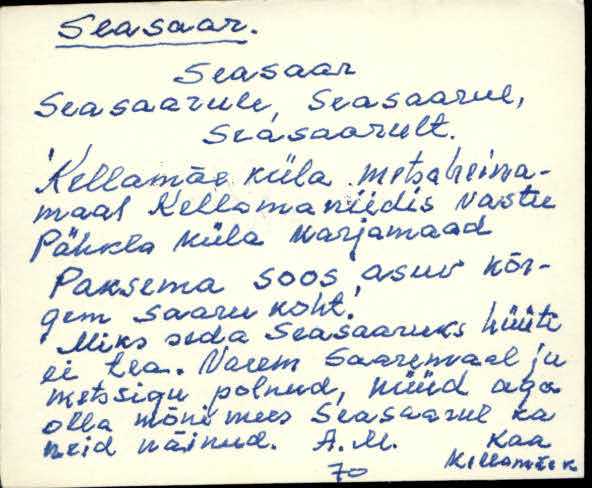 Seasaar.
Seasaar
Seasaarule, Seasaarul,
Seasaarult.
'Kellamäe küla metsaheina-
maal Kellamaniidis vastu
Pähkla küla karjamaad
Paksema soos asuv kõr-
gem saaru koht.'
'Miks seda Seasaaruks hüüti
ei tea. Varem Saaremaal ju
metssigu polnud, nüüd aga
olla mõni mees Seasaarul ka
neid näinud. A.M. Kaa
70 Kellamäe k